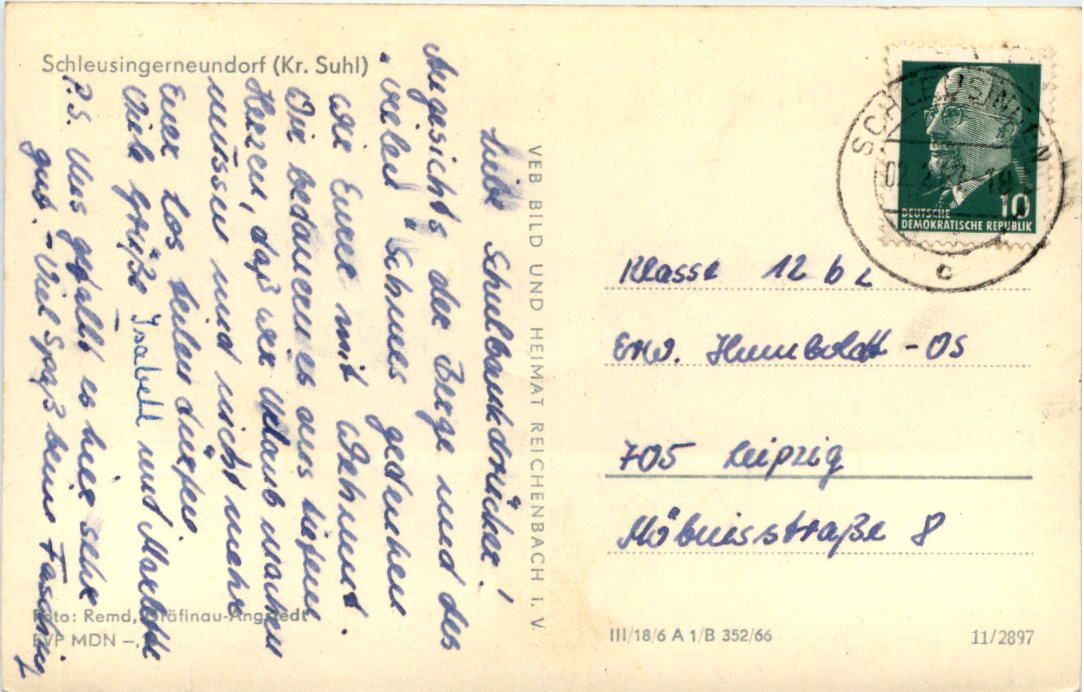 Schleusingerneundorf (Kr. Suhl)
Liebe Schulbankdrücker!
Angesichts der Berge und des
"vielen" Schnees gedenken
wir Eurer mit Wehmut.
Wir bedauern es aus tiefem
Herzen, daß wir Urlaub machen
müssen und nicht mehr
Euer Los teilen dürfen.
Viele Grüße Isabell und Marlette
P.S. Uns gefällt es hier sehr
gut. - Viel Spaß beim Fasching
Foto: Remd, Gräfinau-Angstedt
EVP MDN –,
VEB BILD UND HEIMAT REICHENBACH I. V.
SCHLEUSINGEN
c
10
DEUTSCHE
DEMOKRATISCHE REPUBLIK
Klasse 12 b 2
Erw. Humboldt - OS
705 Leipzig
Möbiusstraße 8
III/18/6 A 1/B 352/66
11/2897